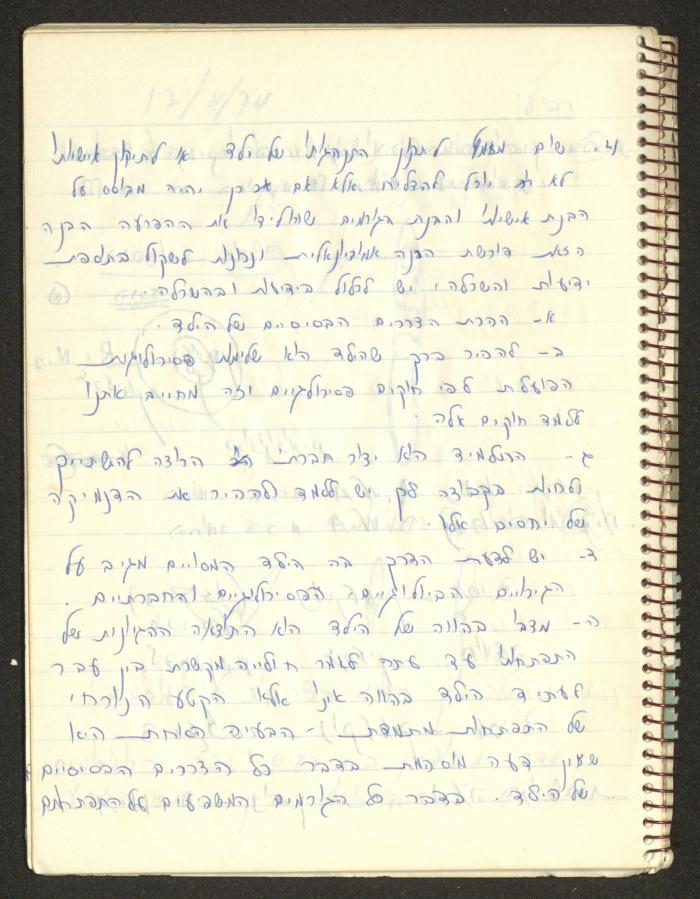 שום מעמץ לתקון התנהגותי של ילד או לתיקון אישיותי
לא יוכל להצליח אלא אם אכן יהיה מבוסס על
הבנת אישיותו והבנת הגורמים שהולידו את ההפרעה הבנה
הזאת דורשת הבנה אמוציונאלית ונכונות לשקול בתוספת
ידיעות והשכלה, יש לכלול בידיעות ובהשכלה:
א- הכרת הצרכים הבסיסיים של הילד.
ב- להכיר בכך שהילד הוא שלימות פסיכולוגית
הפועלת לפי חוקים פסיכולגיים וזה מחייב אתנו
ללמד חוקים אלה.
ג- התלמיד הוא יצור חברתי הרוצה להשתייך
ולחיות בקבוצה לכן יש ללמד ולהכיר את הדנמיקה
של יחסים אלו.
ד- יש לדעת הדרך בה הילד המסויים מגיב על
הגירויים הביולוגיים הפסיכולוגיים והחברתיים.
ה- מצבו בהווה של הילד הוא התוצאה ההגיונות של
התפתחותו עד עתה לאמר חולייה מקשרת בין עבר
לעתיד הילד בהווה אינו אלא הקטע הנוכחי
של התפתחות מתמדת - הבעיה האחת היא
שאין דעה מוסכמת בדבר כל הצרכים הבסיסיים
של הילד. בדבר כל הגורמים המשפיעים על התפתחותם